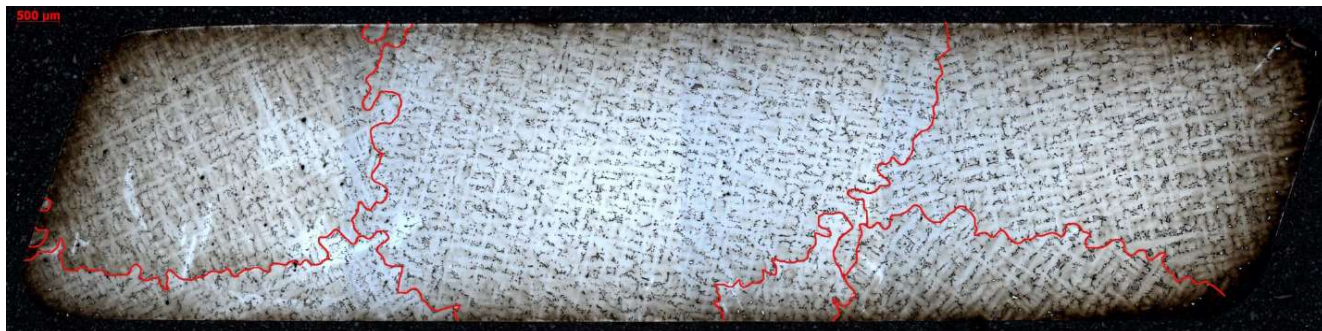 500 µm